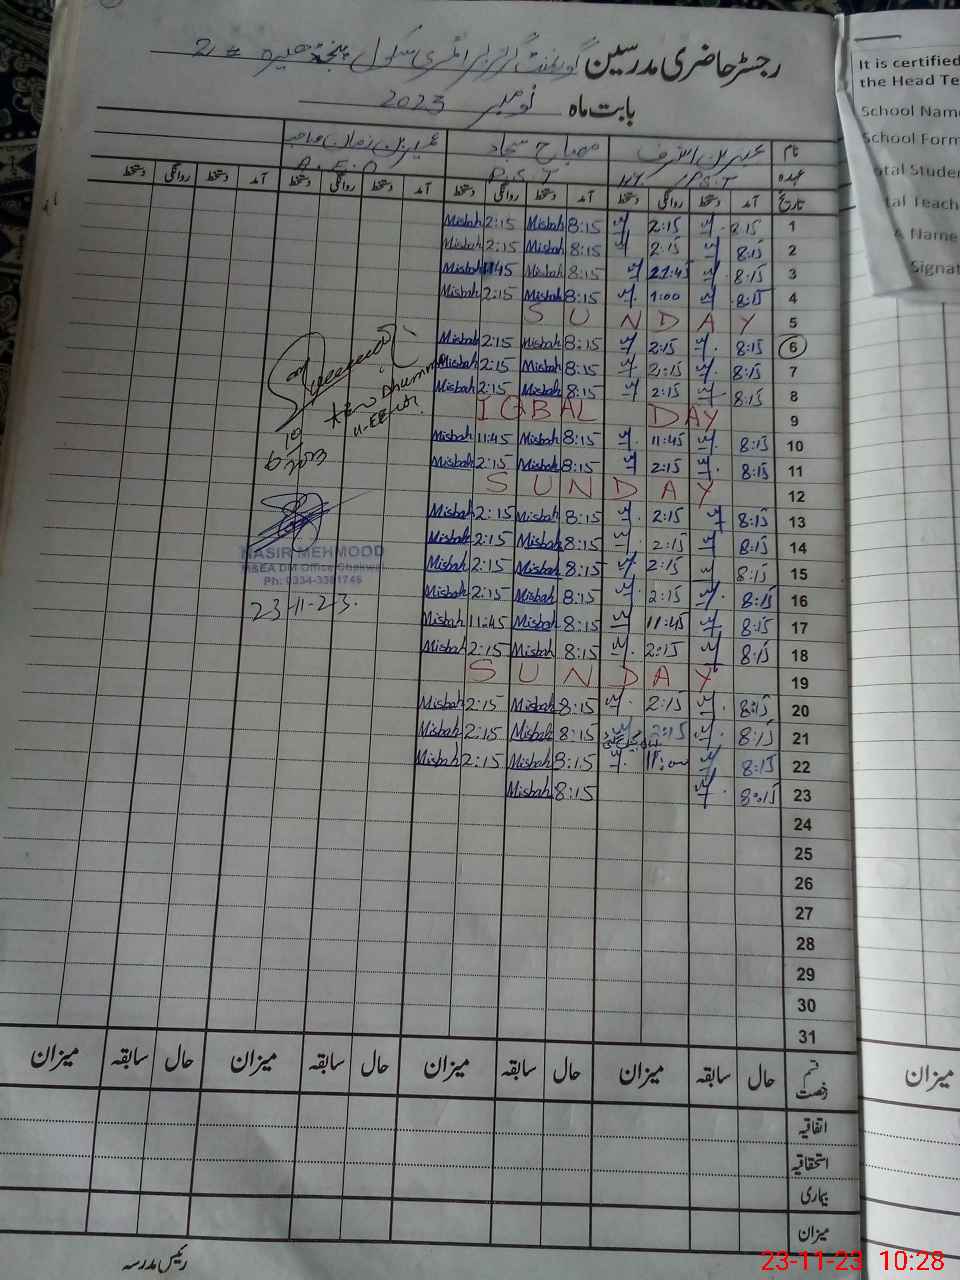 رجسٹر حاضری مدرسین گورنمنٹ گرلز پرائمری سکول
بابت ماہ نومبر 2023
نام عنبرین اشرف مصباح سجاد
عہدہ PST P.S.T A.E.O
تاریخ آمد دستخط روانگی دستخط آمد دستخط روانگی دستخط آمد دستخط روانگی دستخط آمد دستخط روانگی دستخط
1 8:15 2:15 8:15 Misbah 2:15 Misbah
2 8:15 2:15 8:15 Misbah 2:15 Misbah
3 8:15 11:45 8:15 Misbah 11:45 Misbah
4 8:15 1:00 8:15 Misbah 2:15 Misbah
5 SUNDAY
6 8:15 2:15 8:15 Misbah 2:15 Misbah
7 8:15 2:15 8:15 Misbah 2:15 Misbah
8 8:15 2:15 8:15 Misbah 2:15 Misbah
9 IQBAL DAY
10 8:15 11:45 8:15 Misbah 11:45 Misbah
11 8:15 2:15 8:15 Misbah 2:15 Misbah
12 SUNDAY
13 8:15 2:15 8:15 Misbah 2:15 Misbah
14 8:15 2:15 8:15 Misbah 2:15 Misbah
15 8:15 2:15 8:15 Misbah 2:15 Misbah
16 8:15 2:15 8:15 Misbah 2:15 Misbah
17 8:15 11:45 8:15 Misbah 11:45 Misbah
18 8:15 2:15 8:15 Misbah 2:15 Misbah
19 SUNDAY
20 8:15 2:15 8:15 Misbah 2:15 Misbah
21 8:15 2:15 8:15 Misbah 2:15 Misbah
22 8:15 11:00 8:15 Misbah 2:15 Misbah
23 8:15 8:15 Misbah
24
25
26
27
28
29
30
31
NASIR MEHMOOD
MEA DM Office Chakwal
23-11-23.
قسم رخصت حال سابقہ میزان حال سابقہ میزان حال سابقہ میزان حال سابقہ میزان
اتفاقیہ
استحقاقیہ
بیماری
میزان
رئیس مدرسہ
It is certified
the Head Te
School Name
School Form
tal Studen
tal Teach
Name
Signat
میزان
23-11-23 10:28